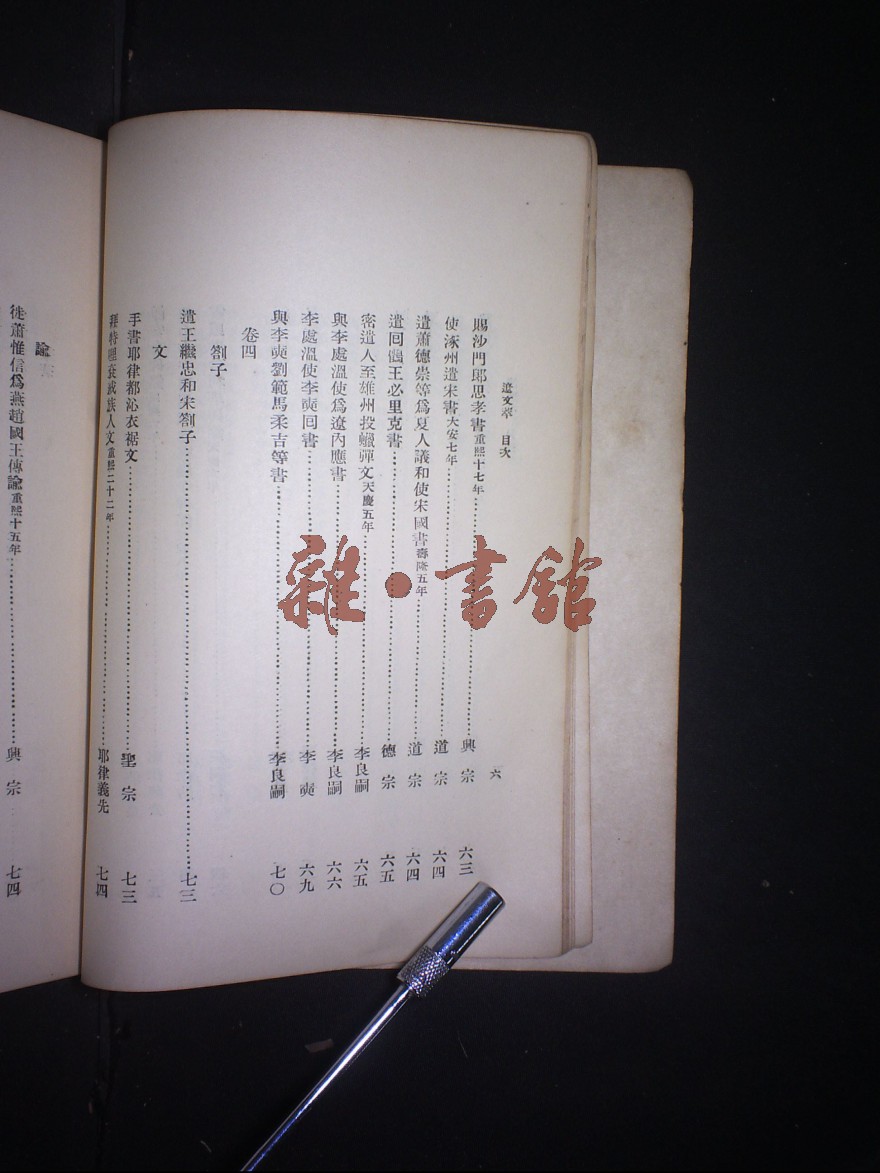 遼文萃 目次 六
賜沙門郎思孝書重熙十七年 興宗 六三
使涿州遺宋書大安七年 道宗 六四
遣蕭德崇等爲夏人議和使宋國書壽隆五年 道宗 六四
遺回鶻王必里克書 德宗 六五
密遣人至雄州投蠟彈文天慶五年 李良嗣 六五
與李處溫使爲遼內應書 李良嗣 六六
李處溫使李奭回書 李奭 六九
與李奭劉範馬柔吉等書 李良嗣 七〇
卷四
劄子
遣王繼忠和宋劄子 七三
文
手書耶律都沁衣裾文 聖宗 七三
拜特哩衮戒族人文重熙二十二年 耶律義先 七四
諭
徙蕭惟信爲燕趙國王傅諭重熙十五年 興宗 七四
雜·書館